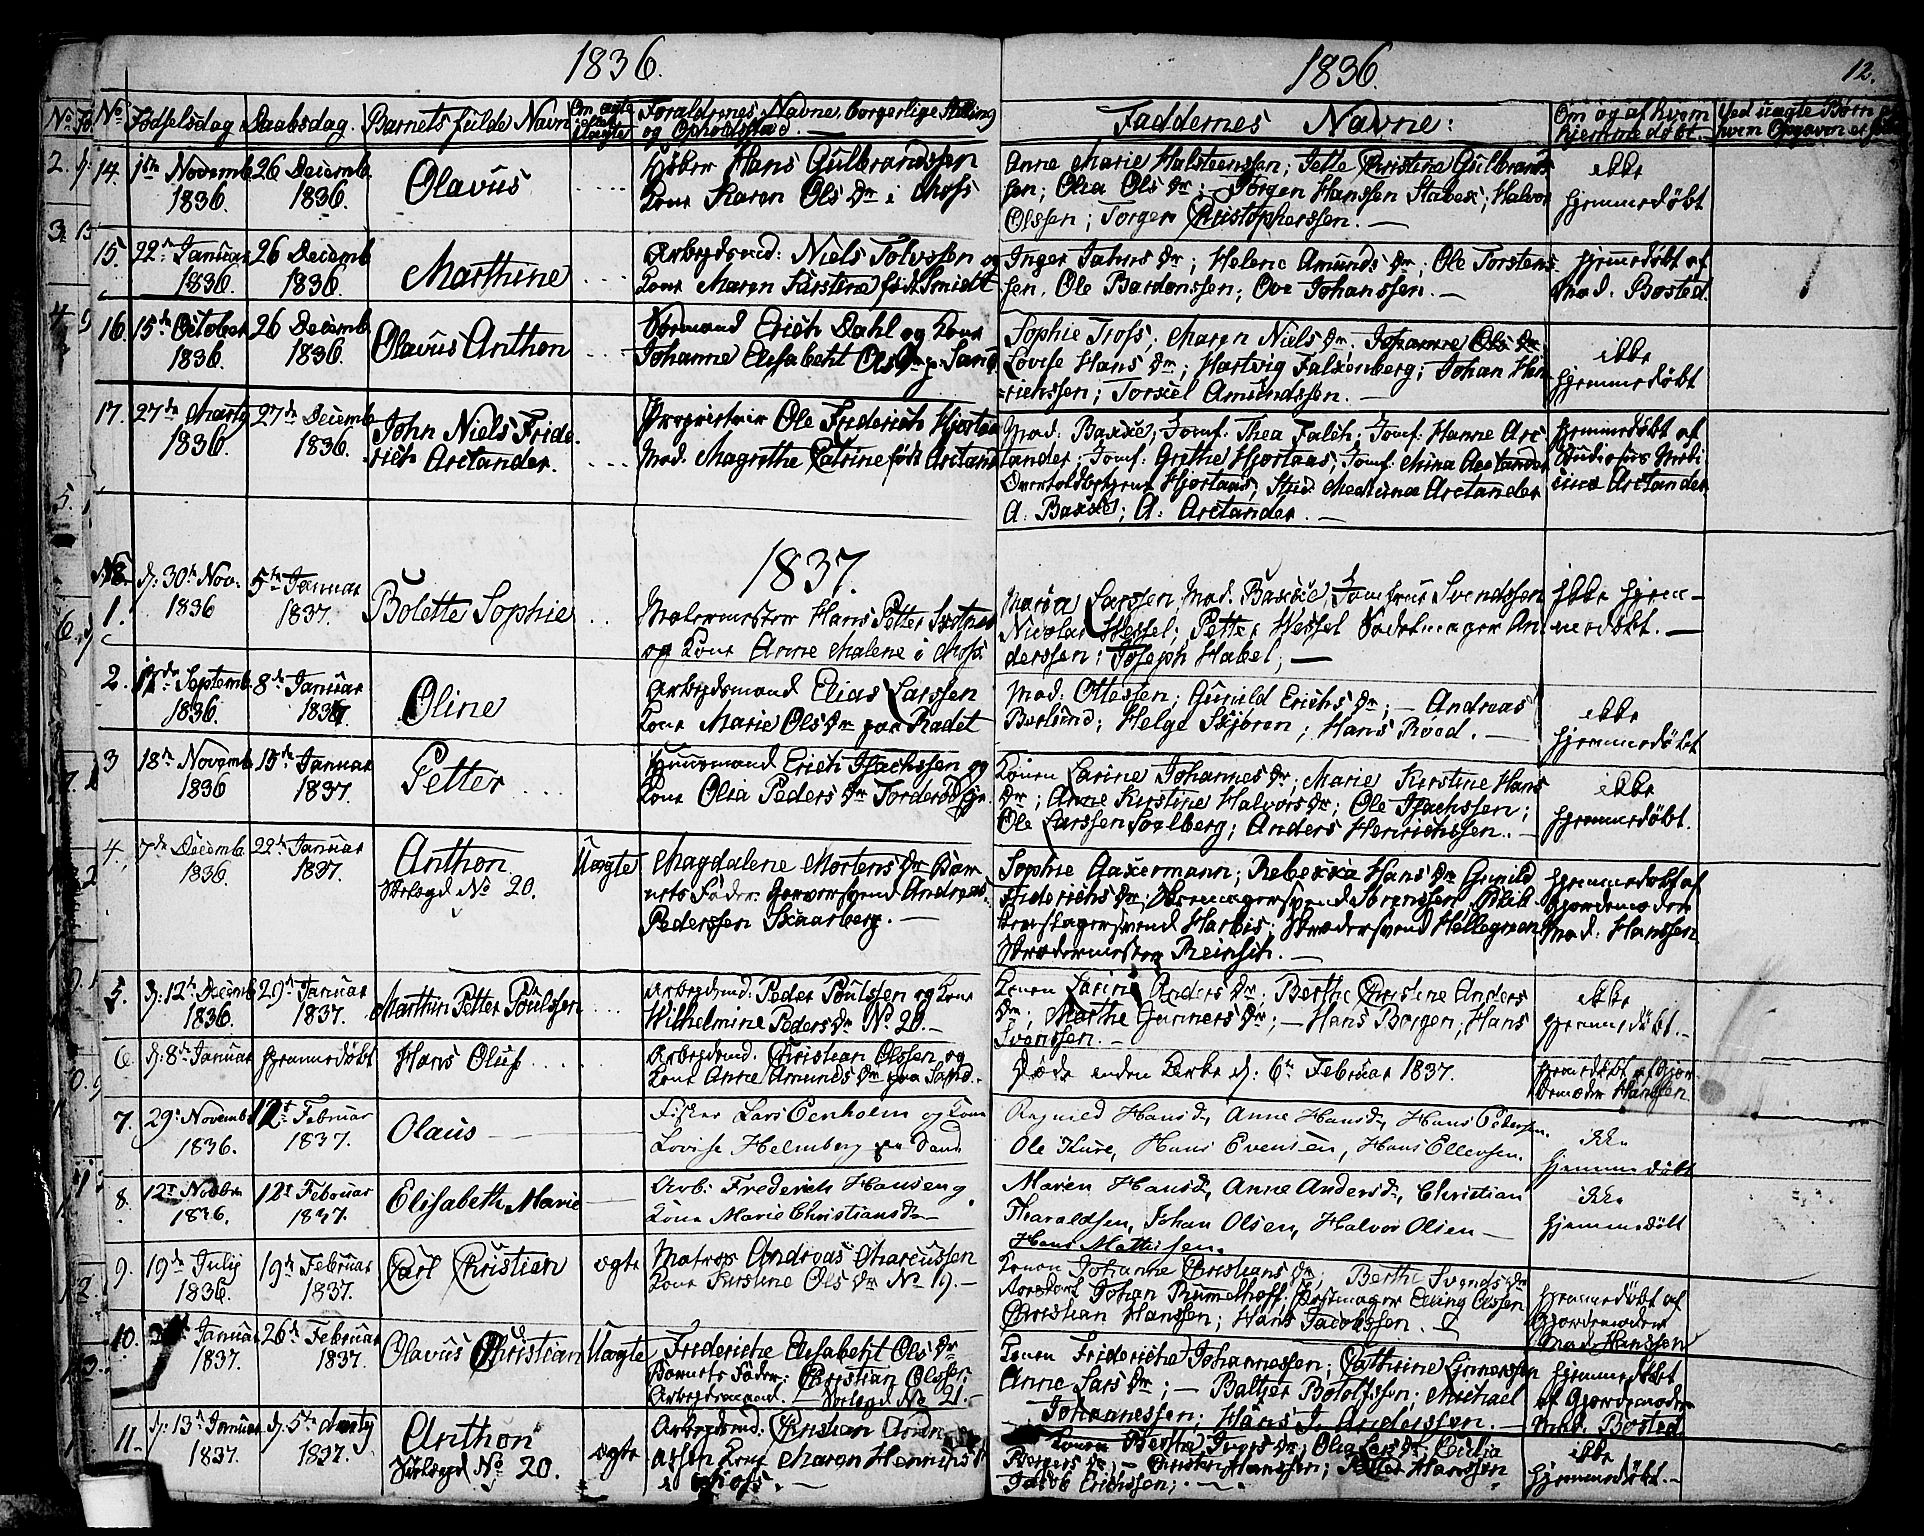 1836.
1836.
12.
No Fødselsdag Daabsdag. Barnets fulde Navn Om ægte eller Uægte Forældrenes Navne, borgerlige Stilling og Opholdsstæd. Faddernes Navne: Om og af hvem hjemmedøbt. Ved uægte Børn
14. 1ste Novemb. 1836. 26 Decemb. 1836. Olavus
Hans Gulbrandssen
Kone Karen Ols Dr i Moss
Anne Marie Halsteenssen; Jette Christine Gulbrands-
sen; Olia Ols Dr; Jørgen Hanssen Stabek; Halvor
Olssen; Torger Christopherssen. —
ikke
hjemmedøbt
15. 22de Januar 1836. 26 Decemb 1836. Marthine
Arbejdsmd: Niels Tolvssen og
Kone Maren Kirstine født Smidt
Inger Jahns Dr; Helene Amunds Dr; Ole Torstens-
sen. Ole Bardonssen; Ove Johanssen. —
hjemmedøbt af
Mad. Bosted.
16. 15de October 1836. 26 Decemb. 1836. Olavus Anthon
Erich Dahl og Kone
Johanne Elisabeht Ols Dr p. Sand
Sophie Tross; Maren Niels Dr. Johanne Ols Dr
Lovise Hans Dr; Hartvig Falkenberg; Johan Hen
richssen; Torkel Amundssen. —
ikke
hjemmedøbt
17. 27de Marty 1836. 27de Decemb 1836. John Niels Fride-
rich Arctander.
Proprietair Ole Friderich Hjortaas
Mad. Magrethe Catrine født Arctander
Mad: Bakke; Jomf. Thea Falch, Jomf: Hanne Arc
tander; Jomf: Grethe Hjortaas; Jomf: Mina Arctander
Overtoldbetjent Hjortaas; Stud: Medicinæ Arctander
A. Bakke; A. Arctander. —
hjemmedøbt af
Studiosus Medi
cinæ Arctander
1837.
No
1. d: 30te Nov. 1836 5te Januar 1837. Bolette Sophie
Malermester Hans Petter
og Kone Anne Malene i Moss
Maria Larssen, Mad. Bakke, Jomfrue Svendssen
Nicolai Wessel; Petter Wessel Andersen
derssen; Joseph Habel; —
Ikke hjem-
medøbt. —
2. Septemb. 1836. 8de Januar 1837. Oline
Arbejdsmand Elias Larssen
Kone Marie Ols Dr paa Radet
Mad: Ottessen; Gunild Erichs Dr; — Andreas
Berlund; Helge Skjøren; Hans Rood. —
ikke
hjemmedøbt
3 18de Novemb 1836 15de Januar 1837. Petter
Huusmand Erich Isachssen og
Kone Olia Peders Dr
Konen Larine Johannes Dr; Marie Kirstine Hans
Dr; Anne Kirstine Halvors Dr; Ole Isachssen;
Ole Larssen Soelberg; Anders Henrichssen. —
ikke
hjemmedøbt.
4. 7de Decemb. 1836. 22de Januar 1837. Anthon
No 20. Uægte
Magdalene Mortens Dr Bar
nets Fader: Garversvend Andreas
Pederssen Skaarberg. —
Sophie Aakermann; Rebekka Hans Dr Gunild
Friderichs Dr; Skomagersvend Sørenssen
Harbis; Skrædersvend Hellegreen
Skrædermester Reinsch. —
hjemmedøbt af
Gjordemoder
Mad: Hanssen
5. d: 12te Decemb 1836. 29de Januar 1837. Marthin Petter Poulssen
Arbejdsmd: Peder Poulssen og Kone
Wilhelmine Peders Dr No 20. —
Konen Larine Anders Dr; Berthe Christine Anders
Dr; Marthe Gunners Dr; — Hans Borgen; Hans
Svenssen. —
ikke
hjemmedøbt. —
6. d: 8de Januar hjemmedøbt Hans Oluf
Arbejdsmd: Christian Olssen og
Kone Anne Amunds Dr paa Sand.
Døde inden Kirke d: 6te Februar 1837.
hjemmedøbt af Gjor
demoder Hanssen
7. 29de Novemb 1836. 12te Februar 1837. Olaus
Fisker Lars Evenholm og Kone
Lovise Helmberg paa Sand
Ragnild Hansd, Anne Hansd, Hans Pedersen.
Ole Kure, Hans Evensen, Hans Ellevsen.
ikke
hjemmedøbt
8. 12te Novbr 1836. 12te Februar 1837. Elisabeth Marie
Arb: Frederich Hansen og
Kone Marie Christiansd
Maren Hansd, Anne Andersd, Christian
Tharaldsen, Johan Olsen, Halvor Olsen —
Hans Mathisen.
ikke
hjemmedøbt
9. 19de July 1836. 19de Februar 1837. Carl Christian ægte
Matros Andreas Marcussen
Kone Kirstine Ols Dr No 19. —
Konen Johanne Christians Dr; Berthe Svends Dr
Johan Rumelhoff. Elling Olssen
Christian Hanssen; Hans Jacobssen.
hjemmedøbt af
Gjordemoder
Mad. Hanssen
10. Januar 1837. 26de Februar 1837. Olavus Christian Uægte
Frideriche Elisabeht Ols Dr
Barnets Fader: Christian Olssen
Arbejdsmand. — No 21.
Konen Frideriche Johannessen; Cathrine Linnerssen
Anne Lars Dr; — Baltzer Bototfssen; Michael
Johannessen; Hans J. Anderssen. —
hjemmedøbt
af Gjordemoder
Mad. Bosted
11. d: 13de Januar 1837. d. 5te Marty 1837. Anthon
No 20. ægte
Arbejdsmd: Christian Andre
assen Kone Maren Hennings Dr
i Moss. —
Konen Berthe Jvers Dr; Olia Lars Dr; Cicilia
Børgers Dr; — Christen Hanssen; Petter Hanssen
Jacob Erichssen; —
ikke
hjemmedøbt. —